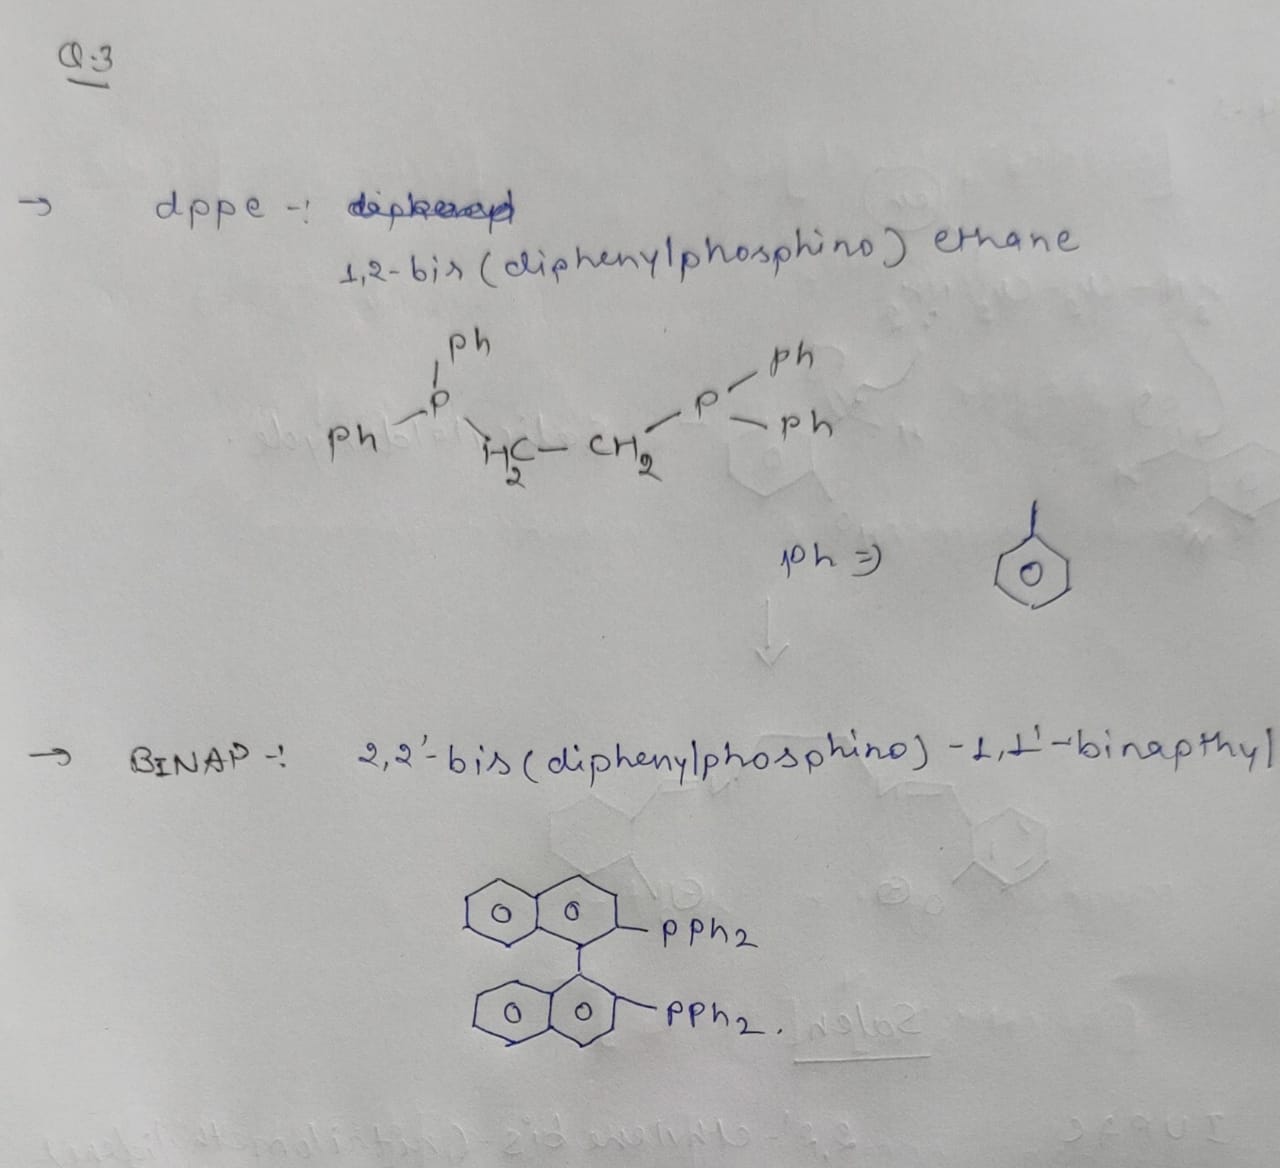 Q.3
→ dppe -:
1,2-bis (diphenylphosphino) ethane
Ph Ph
P P
Ph H2C - CH2 Ph
Ph ⇒
→ BINAP -: 2,2'-bis (diphenylphosphino) -1,1'-binapthyl
PPh2
PPh2.
Salen